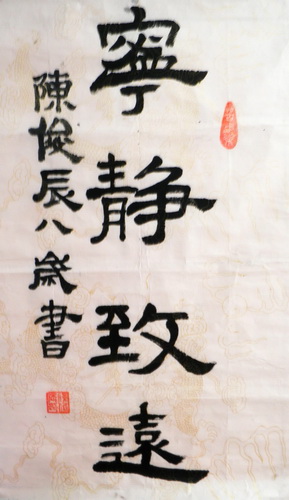 寧靜致遠
陳俊辰八歲書